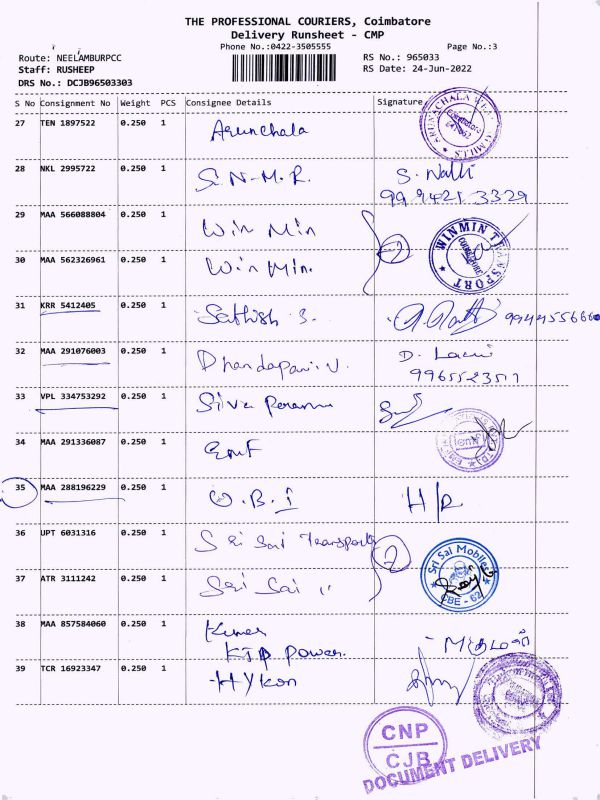 THE PROFESSIONAL COURIERS, Coimbatore
Delivery Runsheet - CMP
Phone No.:0422-3505555 Page No.:3
Route: NEELAMBURPCC RS No.: 965033
Staff: RUSHEEP RS Date: 24-Jun-2022
DRS No.: DCJB96503303
S No Consignment No Weight PCS Consignee Details Signature
27 TEN 1897522 0.250 1 Arunchala
28 NKL 2995722 0.250 1 S.N-M.R. S. Nalli
99 9421 3329
29 MAA 566088804 0.250 1 Win Min
30 MAA 562326961 0.250 1 Win Min. 2 WINMIN TRANSPORT
31 KRR 5412405 0.250 1 Sathish S.
32 MAA 291076003 0.250 1 Dhandapani. V
33 VPL 334753292 0.250 1
34 MAA 291336087 0.250 1
35 MAA 288196229 0.250 1 H/R
36 UPT 6031316 0.250 1 Sri Sai Transport 2
37 ATR 3111242 0.250 1 Sri Sai " Sri Sai Mobiles
CBE - 62
38 MAA 857584060 0.250 1 Kumar
KTP Power.
39 TCR 16923347 0.250 1 HYKON
CNP
CJB
DOCUMENT DELIVERY